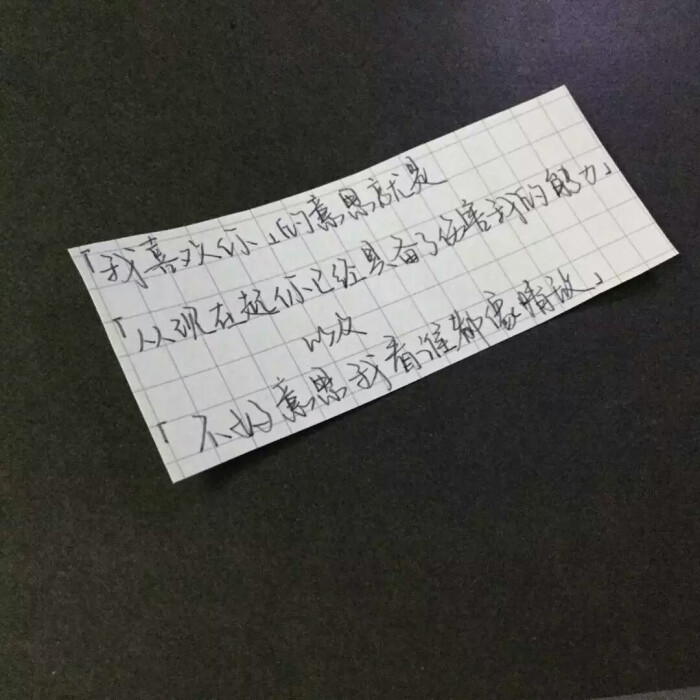 「我喜欢你」的意思就是
「从现在起你已经具备了伤害我的能力」
以及
「不好意思我看谁都像情敌」